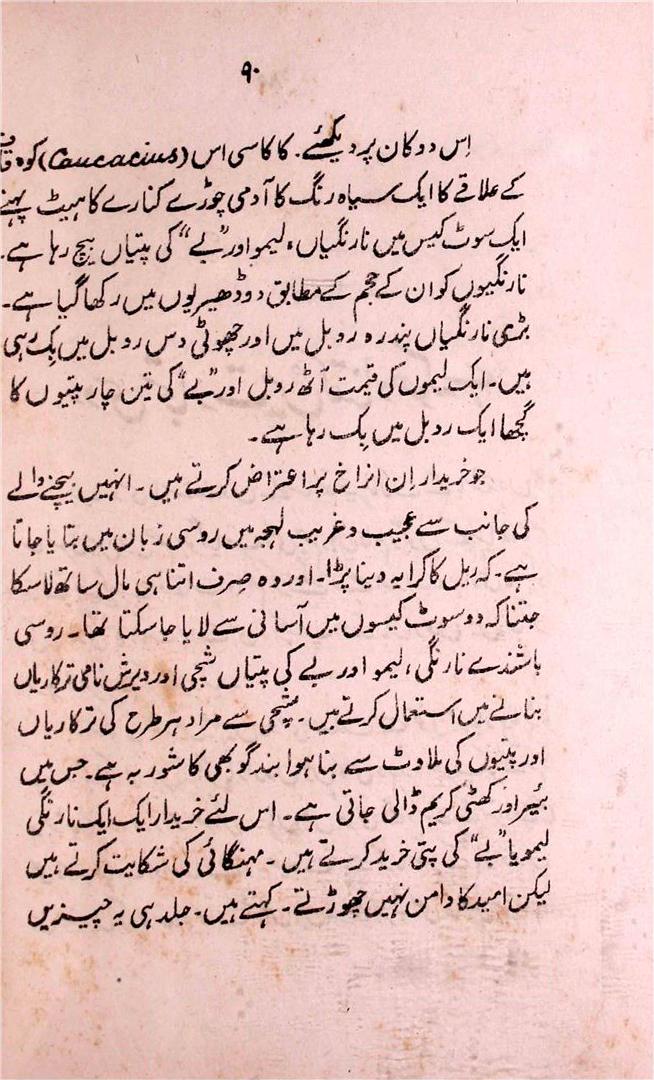 ۹۰
اِس دوکان پر دیکھئے۔ کاکاسی اس (Caucacius) کوہ قاف
کے علاقے کا ایک سیاہ رنگ کا آدمی چوڑے کنارے کا ہیٹ پہنے
ایک سوٹ کیس میں نارنگیاں، لیمو اور ”بے“ کی پتیاں بیچ رہا ہے۔
نارنگیوں کو ان کے حجم کے مطابق دو ڈھیریوں میں رکھا گیا ہے۔
بڑی نارنگیاں پندرہ روبل میں اور چھوٹی دس روبل میں بِک رہی
ہیں۔ ایک لیموں کی قیمت آٹھ روبل اور ”بے“ کی تین چار پتیوں کا
گچھا ایک روبل میں بِک رہا ہے۔
جو خریدار اِن انراخ پر اعتراض کرتے ہیں۔ انہیں بیچنے والے
کی جانب سے عجیب و غریب لہجہ میں روسی زبان میں بتایا جاتا
ہے۔ کہ ریل کا کرایہ دینا پڑا۔ اور وہ صِرف اتنا ہی مال ساتھ لا سکا
جتنا کہ دو سوٹ کیسوں میں آسانی سے لایا جا سکتا تھا۔ روسی
باشندے نارنگی، لیمو اور بے کی پتیاں شچی اور دیرش نامی ترکاریاں
بنانے میں استعمال کرتے ہیں۔ شچی سے مراد ہر طرح کی ترکاریاں
اور پتیوں کی ملاوٹ سے بنا ہوا بند گوبھی کا شوربہ ہے۔ جس میں
بیئر اور کھٹی کریم ڈالی جاتی ہے۔ اس لئے خریدار ایک ایک نارنگی
لیمو یا ”بے“ کی پتی خرید کرتے ہیں۔ مہنگائی کی شکایت کرتے ہیں
لیکن امید کا دامن نہیں چھوڑتے۔ کہتے ہیں۔ جلد ہی یہ چیزیں